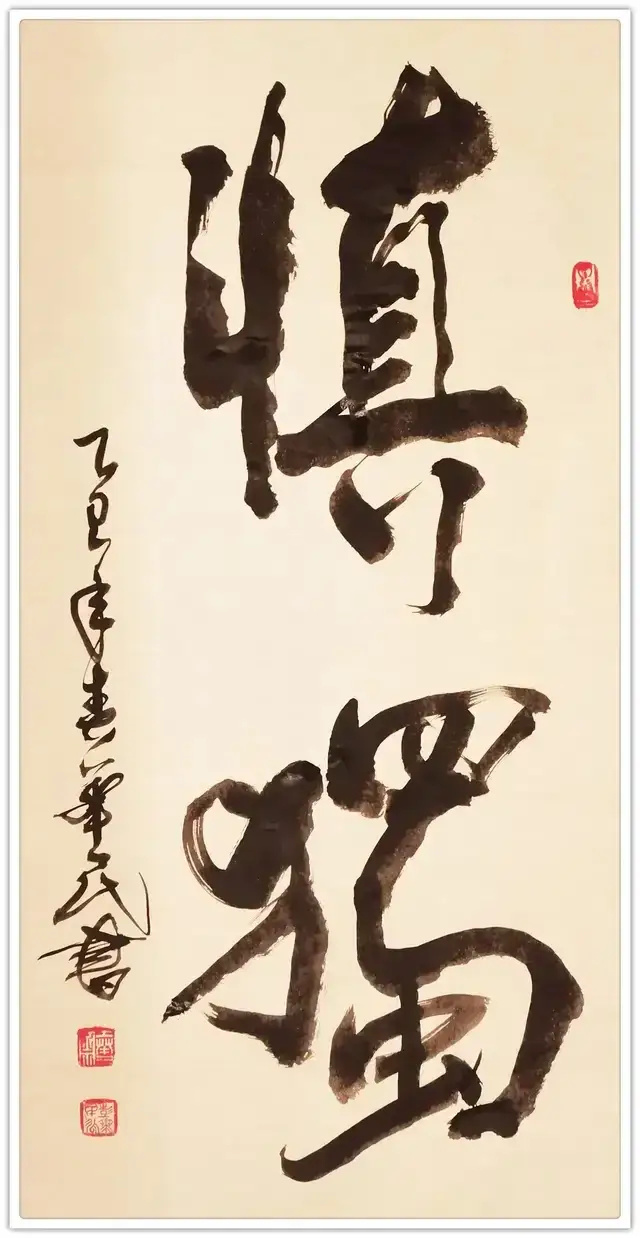 慎獨
乙巳年春華民書